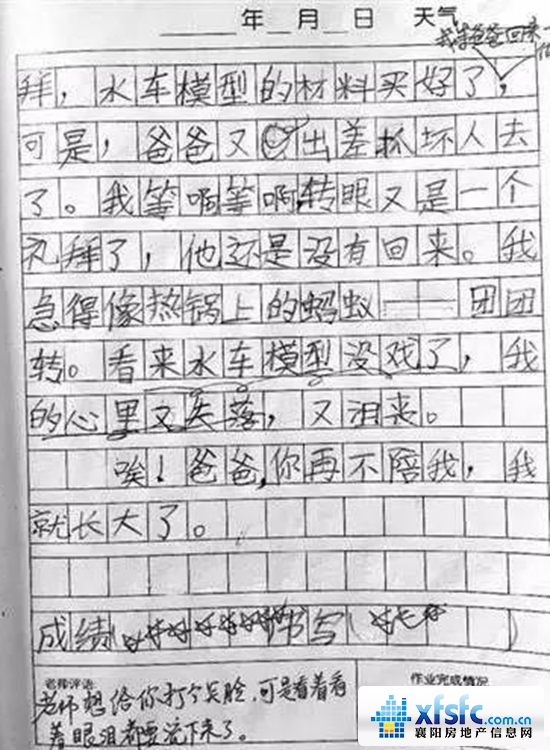 年 月 日 天气
我等爸爸回来一
拜，水车模型的材料买好了，
可是，爸爸又出差抓坏人去
了。我等啊等啊，转眼又是一个
礼拜了，他还是没有回来。我
急得像热锅上的蚂蚁——团团
转。看来水车模型没戏了，我
的心里又失落，又沮丧。
唉！爸爸，你再不陪我，我
就长大了。
成绩（ 书写（ ）
老师评语 作业完成情况
老师想给你打个笑脸，可是看着看
着眼泪都要流下来了。
xfsfc.com
襄阳房地产信息网